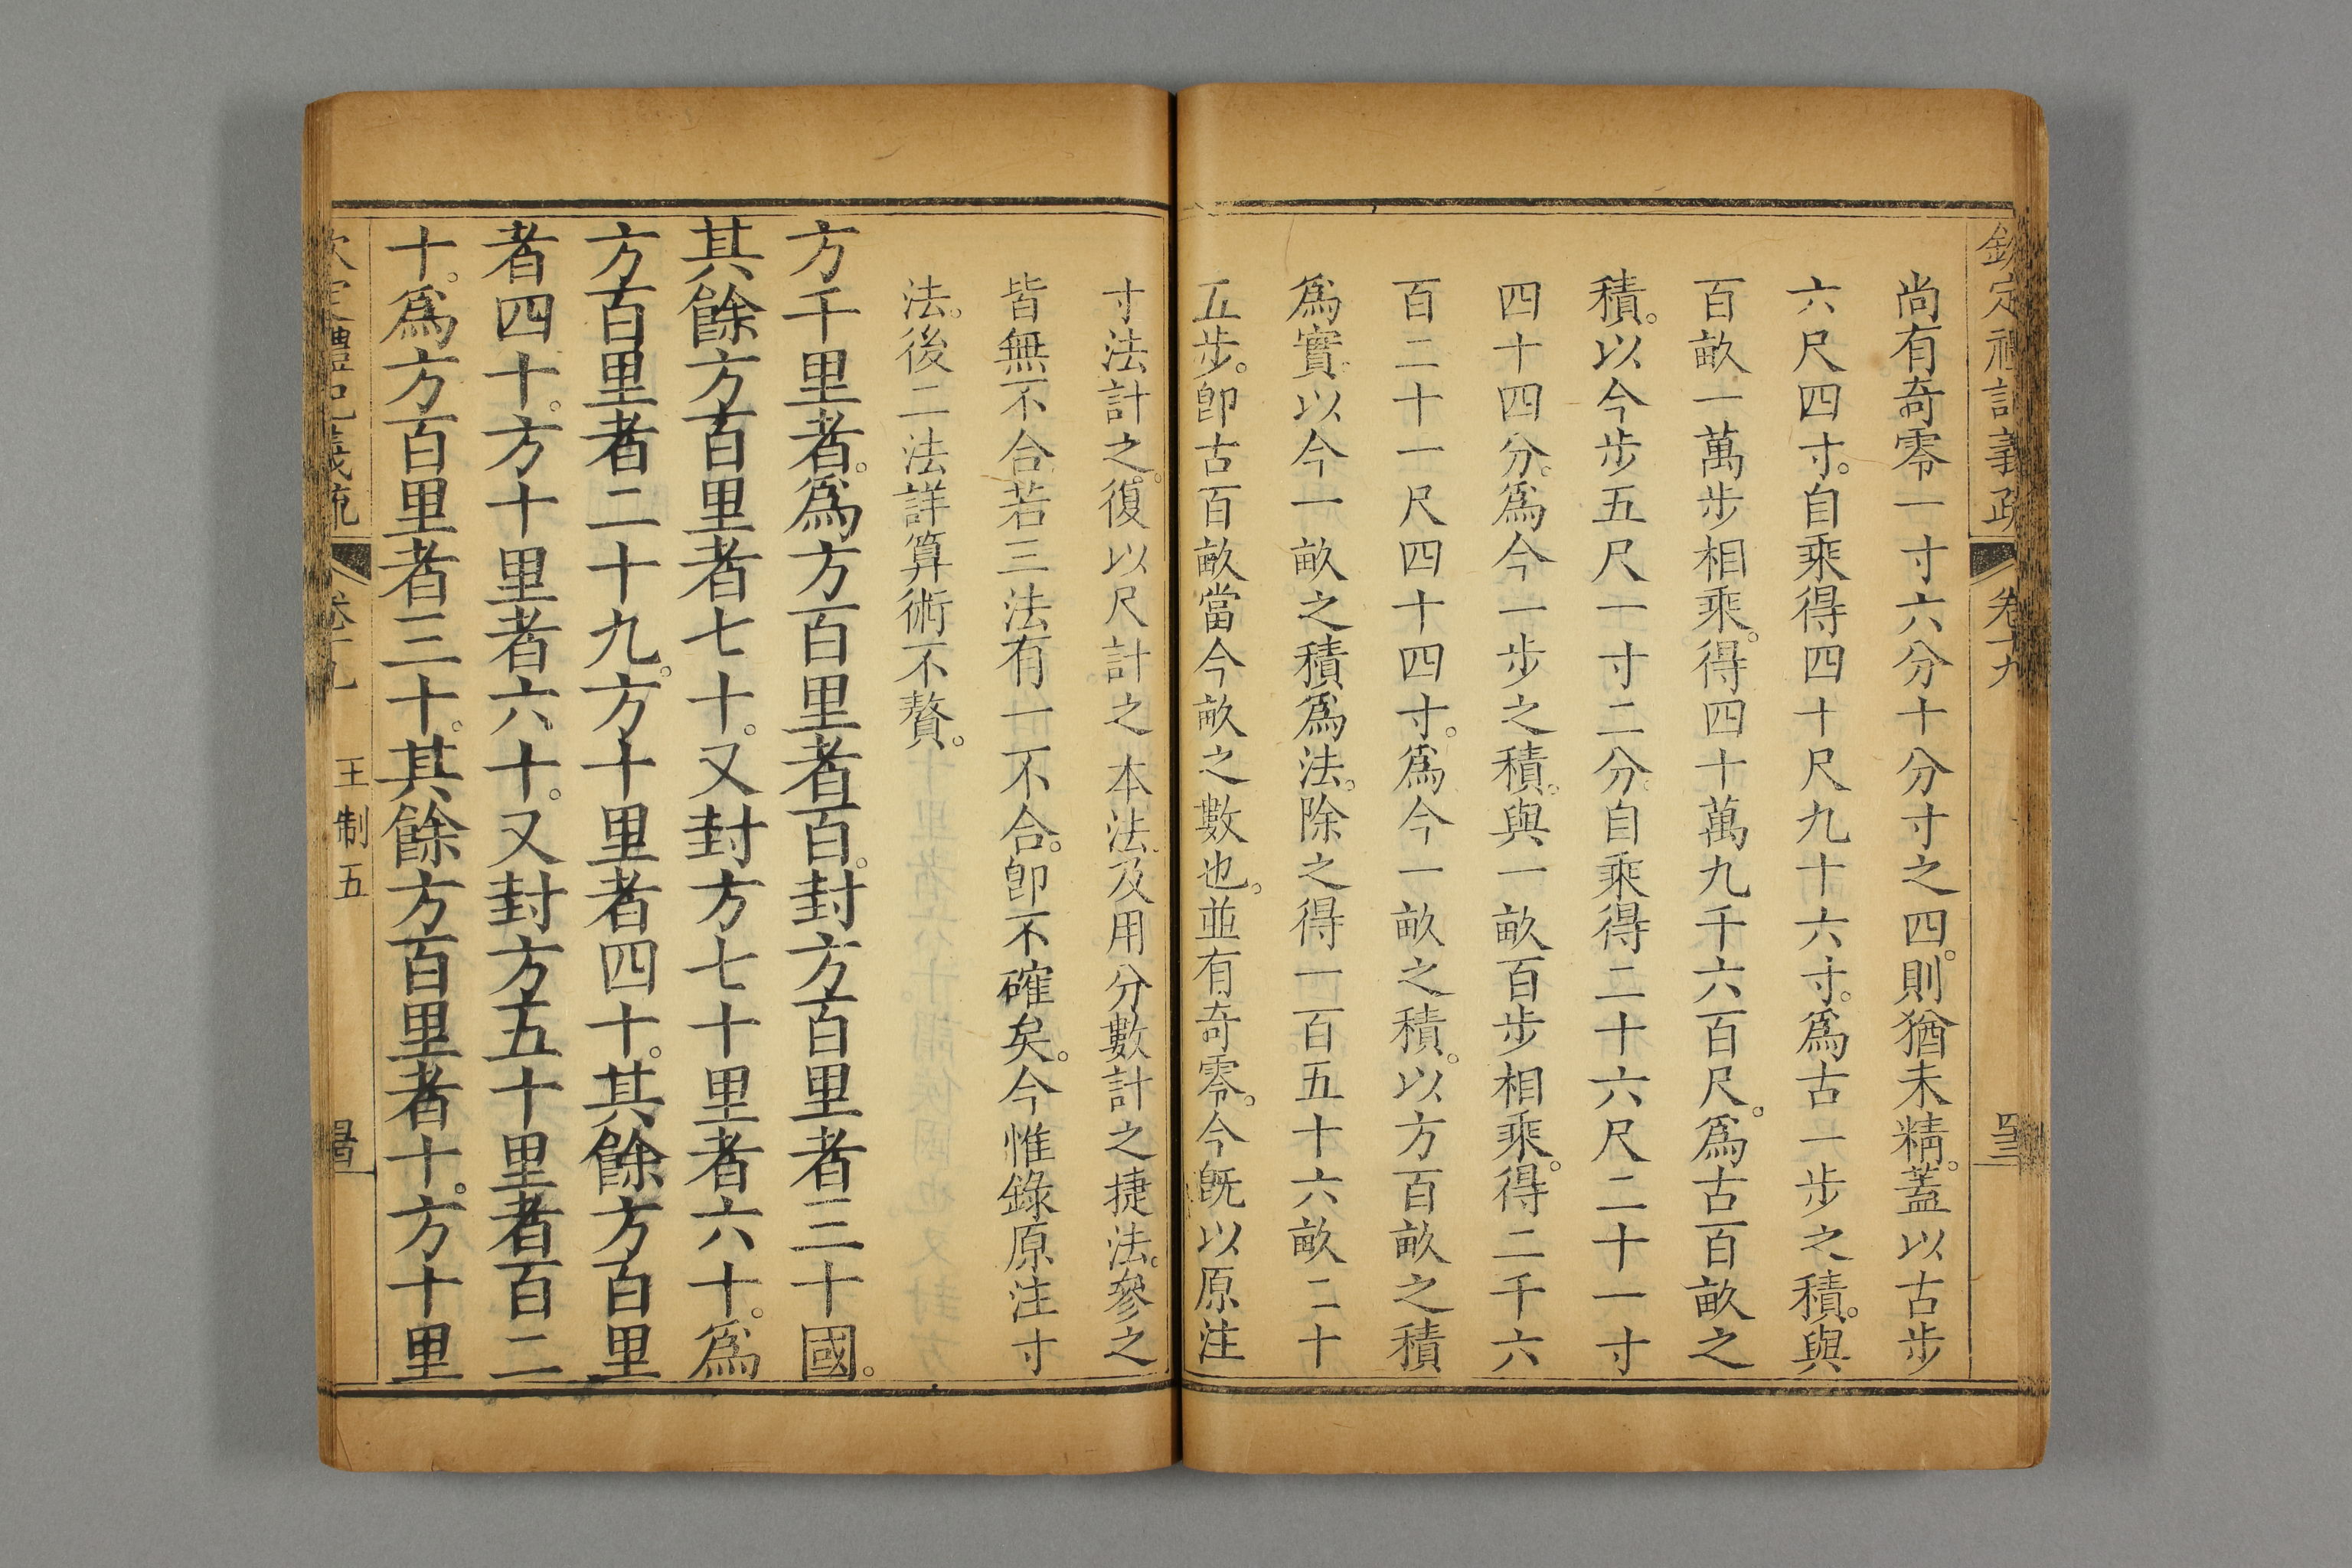 欽定禮記義疏 卷十九
尚有奇零一寸六分十分寸之四。則猶未精。蓋以古步
六尺四寸。自乘得四十尺九十六寸。爲古一步之積。與
百畝一萬步相乘。得四十萬九千六百尺。爲古百畝之
積。以今步五尺一寸二分。自乘得二十六尺二十一寸
四十四分。爲今一步之積。與一畝百步相乘。得二千六
百二十一尺四十四寸。爲今一畝之積。以方百畝之積
爲實。以今一畝之積爲法。除之得一百五十六畝二十
五步。卽古百畝當今畝之數也。並有奇零。今旣以原注
寸法計之。復以尺計之本法。及用分數計之捷法。參之
皆無不合。若三法有一不合。卽不確矣。今惟錄原注寸
法。後二法詳算術不贅。
方千里者。爲方百里者百。封方百里者三十國。
其餘方百里者七十。又封方七十里者六十。爲
方百里者二十九。方十里者四十。其餘方百里
者四十。方十里者六十。又封方五十里者百二
十。爲方百里者三十。其餘方百里者十。方十里
欽定禮記義疏 卷十九 王制五